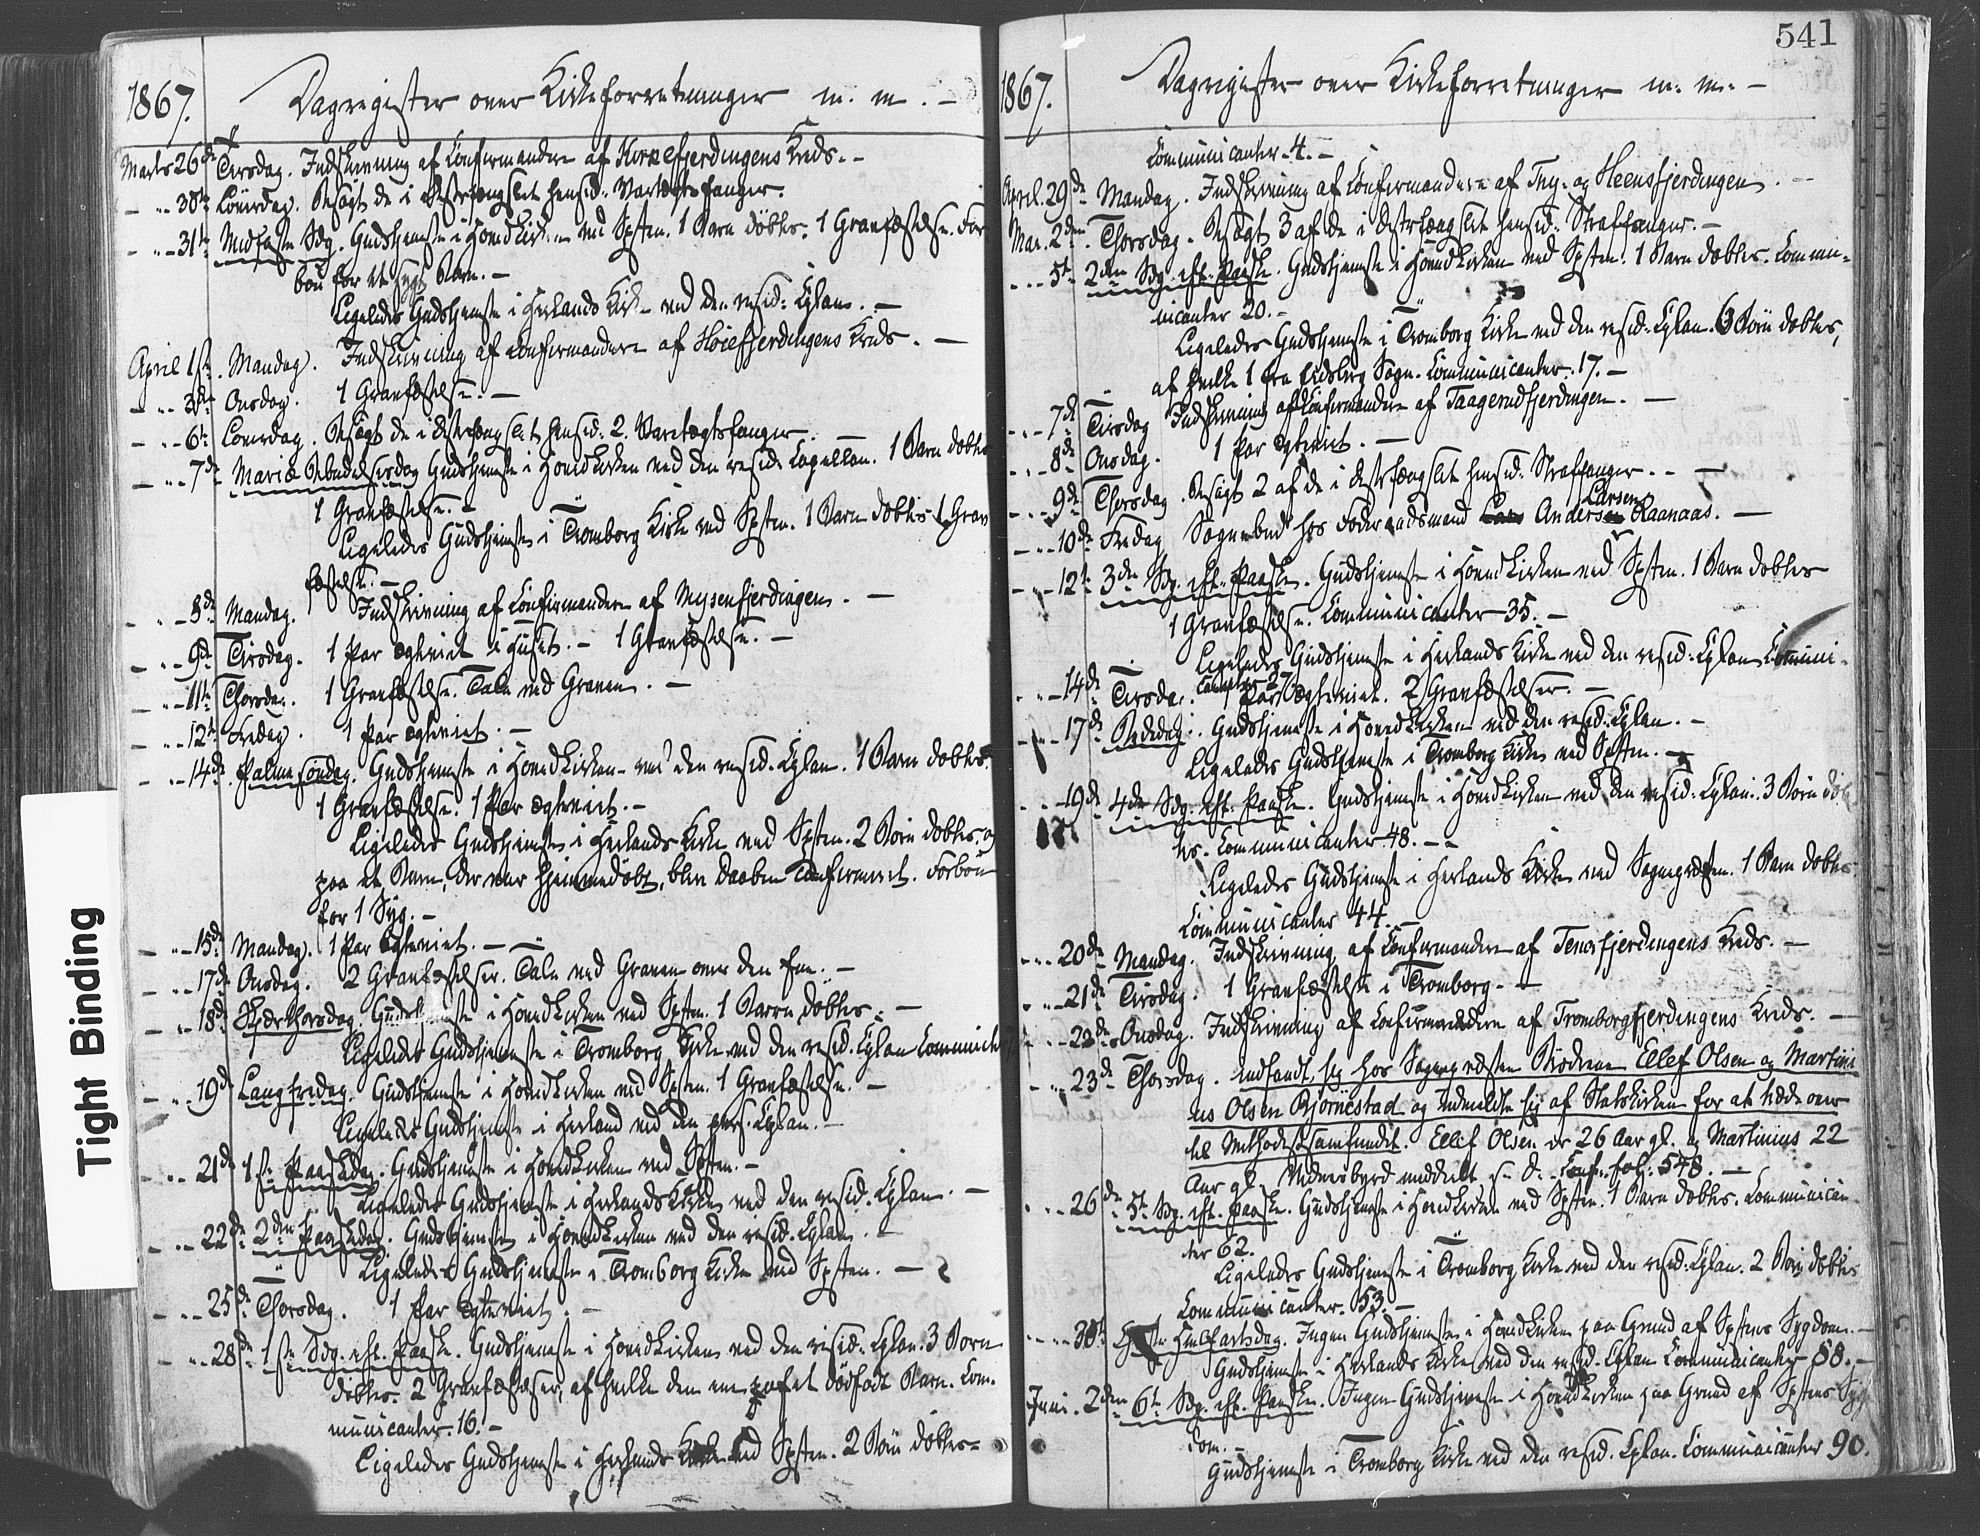 1867. Dagregister over Kirkeforretninger m. m. –
Marts 26de Tirsdag. Indskrivning af Confirmandere af Kirkefjerdingens Kreds. –
– „ – 30te Löverdag. Besögt de i Distrfængslet hensid. Vartægtsfanger.
– „ – 31te Midfaste Sdg. Gudstjeneste i Hovedkirken ved Spsten. 1 Barn döbtes. 1 Gravfæstelse. For
bön for et sygt Barn. –
Ligeledes Gudstjeneste i Herlands Kirke ved den resid. Cplan. –
April 1ste. Mandag. Indskrivning af Confirmandere af Höiefjerdingens Kreds. –
– „ – 3die Onsdag. 1 Gravfæstelse. –
– „ – 6te Löverdag. Besögt de i Distrfængslet hensid. 2. Varetægtsfanger.
– „ – 7de Mariæ Bebudelsesdag Gudstjeneste i Hovedkirken ved den resid. Capellan. 1 Barn döbtes
1 Gravfæstelse. –
Ligeledes Gudstjeneste i Tromborg Kirke ved Spsten. 1 Barn döbtes 1 Grav
fæstelse. –
– „ – 8de Mandag. Indskrivning af Confirmandere af Mysenfjerdingen. –
– „ – 9de Tirsdag. 1 Par ægteviet i Huset. – 1 Gravfæstelse. –
– „ – 11te Thorsdag. 1 Gravfæstelse. Tale ved Graven. –
– „ – 12te Fredag. 1 Par ægteviet. –
– „ – 14de Palmesöndag. Gudstjeneste i Hovedkirken ved den resid. Cplan. 1 Barn döbtes.
1 Gravfæstelse. 1 Par ægteviet. –
Ligeledes Gudstjeneste i Herlands Kirke ved Spsten. 2 Börn döbtes, og
paa et Barn, der var hjemmedöbt, blev Daaben confirmeret. Forbön
for 1 Syg. –
– „ – 15de Mandag. 1 Par ægteviet. –
– „ – 17de Onsdag. 2 Gravfæstelser. Tale ved Graven over den Ene. –
– „ – 18de Skjærthorsdag Gudstjeneste i Hovedkirken ved Spsten. 1 Barn döbtes. –
Ligeledes Gudstjeneste i Tromborg Kirke ved den resid. Cplan
– „ – 19de Langfredag. Gudstjeneste i Hovedkirken ved Spsten. 1 Gravfæstelse. –
Ligeledes Gudstjeneste i Herland ved den pers. Cplan. –
– „ – 21de 1ste Paaskedag. Gudstjeneste i Hovedkirken ved Spsten. –
Ligeledes Gudstjeneste i Herlands Kirke ved den resid. Cplan. –
– „ – 22de 2den Paaskedag. Gudstjeneste i Hovedkirken ved den resid. Cplan. –
Ligeledes Gudstjeneste i Tromborg Kirke ved Spsten. –
– „ – 25de Thorsdag. 1 Par ægteviet. –
– „ – 28de 1ste Sdg. eft. Paaske. Gudstjeneste i Hovedkirken ved den resid. Cplan. 3 Börn
döbtes. 2 Gravfæstelser, af hvilke den ene paa et dödfödt Barn. Com-
municanter. 16. –
Ligeledes Gudstjeneste i Herlands Kirke ved Spsten. 2 Börn döbtes –
Tight Binding
541
1867. Dagregister over Kirkeforretninger m. m. –
Communicanter 4. –
April. 29de Mandag. Indskrivning af Confirmandere af Tny- og Heensfjerdingen. –
Mai. 2den Thorsdag. Besögt 3 af de i Distrfængslet hensid. Straffanger. –
– „ – 5te 2den Sdg. eft. Paaske. Gudstjeneste i Hovedkirken ved Spsten. 1 Barn döbtes. Commu-
nicanter 20. –
Ligeledes Gudstjeneste i Tromborg Kirke ved den resid. Cplan. 3 Börn döbtes,
af hvilke 1 fra Eidsberg Sogn. Communicanter. 17. –
– „ – 7de Tirsdag Indskrivning af Confirmandere af Taagerudfjerdingen. –
– „ – 8de Onsdag. 1 Par ægteviet. –
– „ – 9de Thorsdag. Besögt 2 af de i Distrfængslet hensid. Straffanger. –
Larsen
– „ – 10de Fredag Sognebud hos Föderaadsmand Anders Raanaas. –
– „ – 12te 3die Sdg. eft. Paaske. Gudstjeneste i Hovedkirken ved Spsten. 1 Barn döbtes
1 Gravfæstelse. Communicanter 35. –
Ligeledes Gudstjeneste i Herlands Kirke ved den resid. Cplan Communi-
canter 27
– „ – 14de Tirsdag. Par ægteviet. 2 Gravfæstelser. –
– „ – 17de Bededag. Gudstjeneste i Hovedkirken ved den resid. Cplan. –
Ligeledes Gudstjeneste i Tromborg Kirke ved Spsten. –
– „ – 19de 4de Sdg. eft. Paaske. Gudstjeneste i Hovedkirken ved den resid. Cplan. 3 Börn döb
tes. Communicanter 48. –
Ligeledes Gudstjeneste i Herlands Kirke ved Sognepræsten. 1 Barn döbtes.
Communicanter 44. –
– „ – 20de Mandag. Indskrivning af Confirmandere af Tenorfjerdingens Kreds. –
– „ – 21de Tirsdag. 1 Gravfæstelse i Tromborg. –
– „ – 22de Onsdag. Indskrivning af Confirmandere af Tromborgfjerdingens Kreds. –
– „ – 23de Thorsdag. indfandt sig hos Sognepræsten Brödrene Ellef Olsen og Martini
us Olsen Bjørnestad og udmeldte sig af Statskirken for at træde over
til Methodistsamfundet. Ellef Olsen er 26 Aar gl. og Martinius 22
Aar gl. Vidnesbyrd meddeelt s. D. Conf. fol. 548. –
– „ – 26de 5te Sdg. eft. Paaske. Gudstjeneste i Hovedkirken ved Spsten. 1 Barn döbtes. Communican
ter 62.
Ligeledes Gudstjeneste i Tromborg Kirke ved den resid. Cplan. 2 Börn döbtes
Communicanter. 53. –
– „ – 30te Himmelfartsdag. Ingen Gudstjeneste i Hovedkirken paa Grund af Spstens Sygdom. –
Gudstjeneste i Herlands Kirke ved den resid. Cplan Communicanter 88. –
Juni. 2den 6te Sdg. eft. Paaske. Ingen Gudstjeneste i Hovedkirken paa Grund af Spstens Syg
dom. –
Gudstjeneste i Tromborg Kirke ved den resid. Cplan. Communicanter 90.